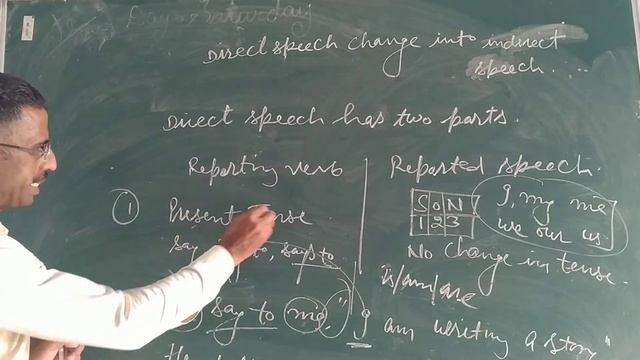 Day = Saturday
Direct speech change into indirect
speech....
Direct speech has two parts.
Reporting verb
Reported speech.
① Present Tense
S O N
1 2 3
I, my me
we our us
say to, says to
No change in tense.
is/am/are
say to me, "I
am writing a story"